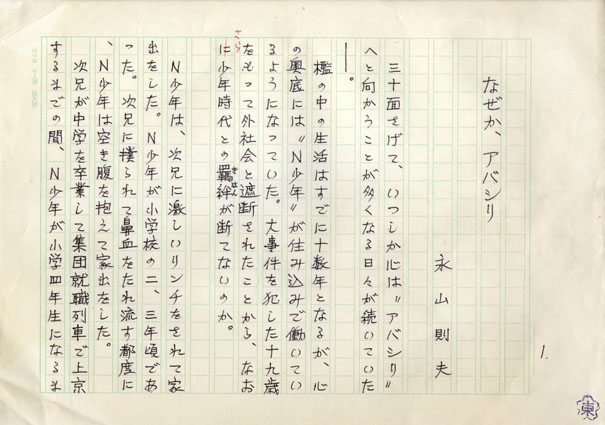 なぜか、アバシリ
永山則夫
1.
三十面をさげて、いつしか心は〃アバシリ〃
へと向かうことが多くなる日々が続いていた
――。
檻の中の生活はすでに十数年となるが、心
の奥底には〃N少年〃が住み込みで働いてい
るようになっていた。大事件を犯した十九歳
をもって外社会と遮断されたことから、なお
さら
に少年時代との羈絆が断てないのか。
きはん
N少年は、次兄に激しいリンチをされて家
出をした。N少年が小学校の二、三年頃であ
った。次兄に撲られて鼻血をたれ流す都度に
、N少年は空き腹を抱えて家出をした。
次兄が中学を卒業して集団就職列車で上京
するまでの間、N少年が小学四年生になるま
東